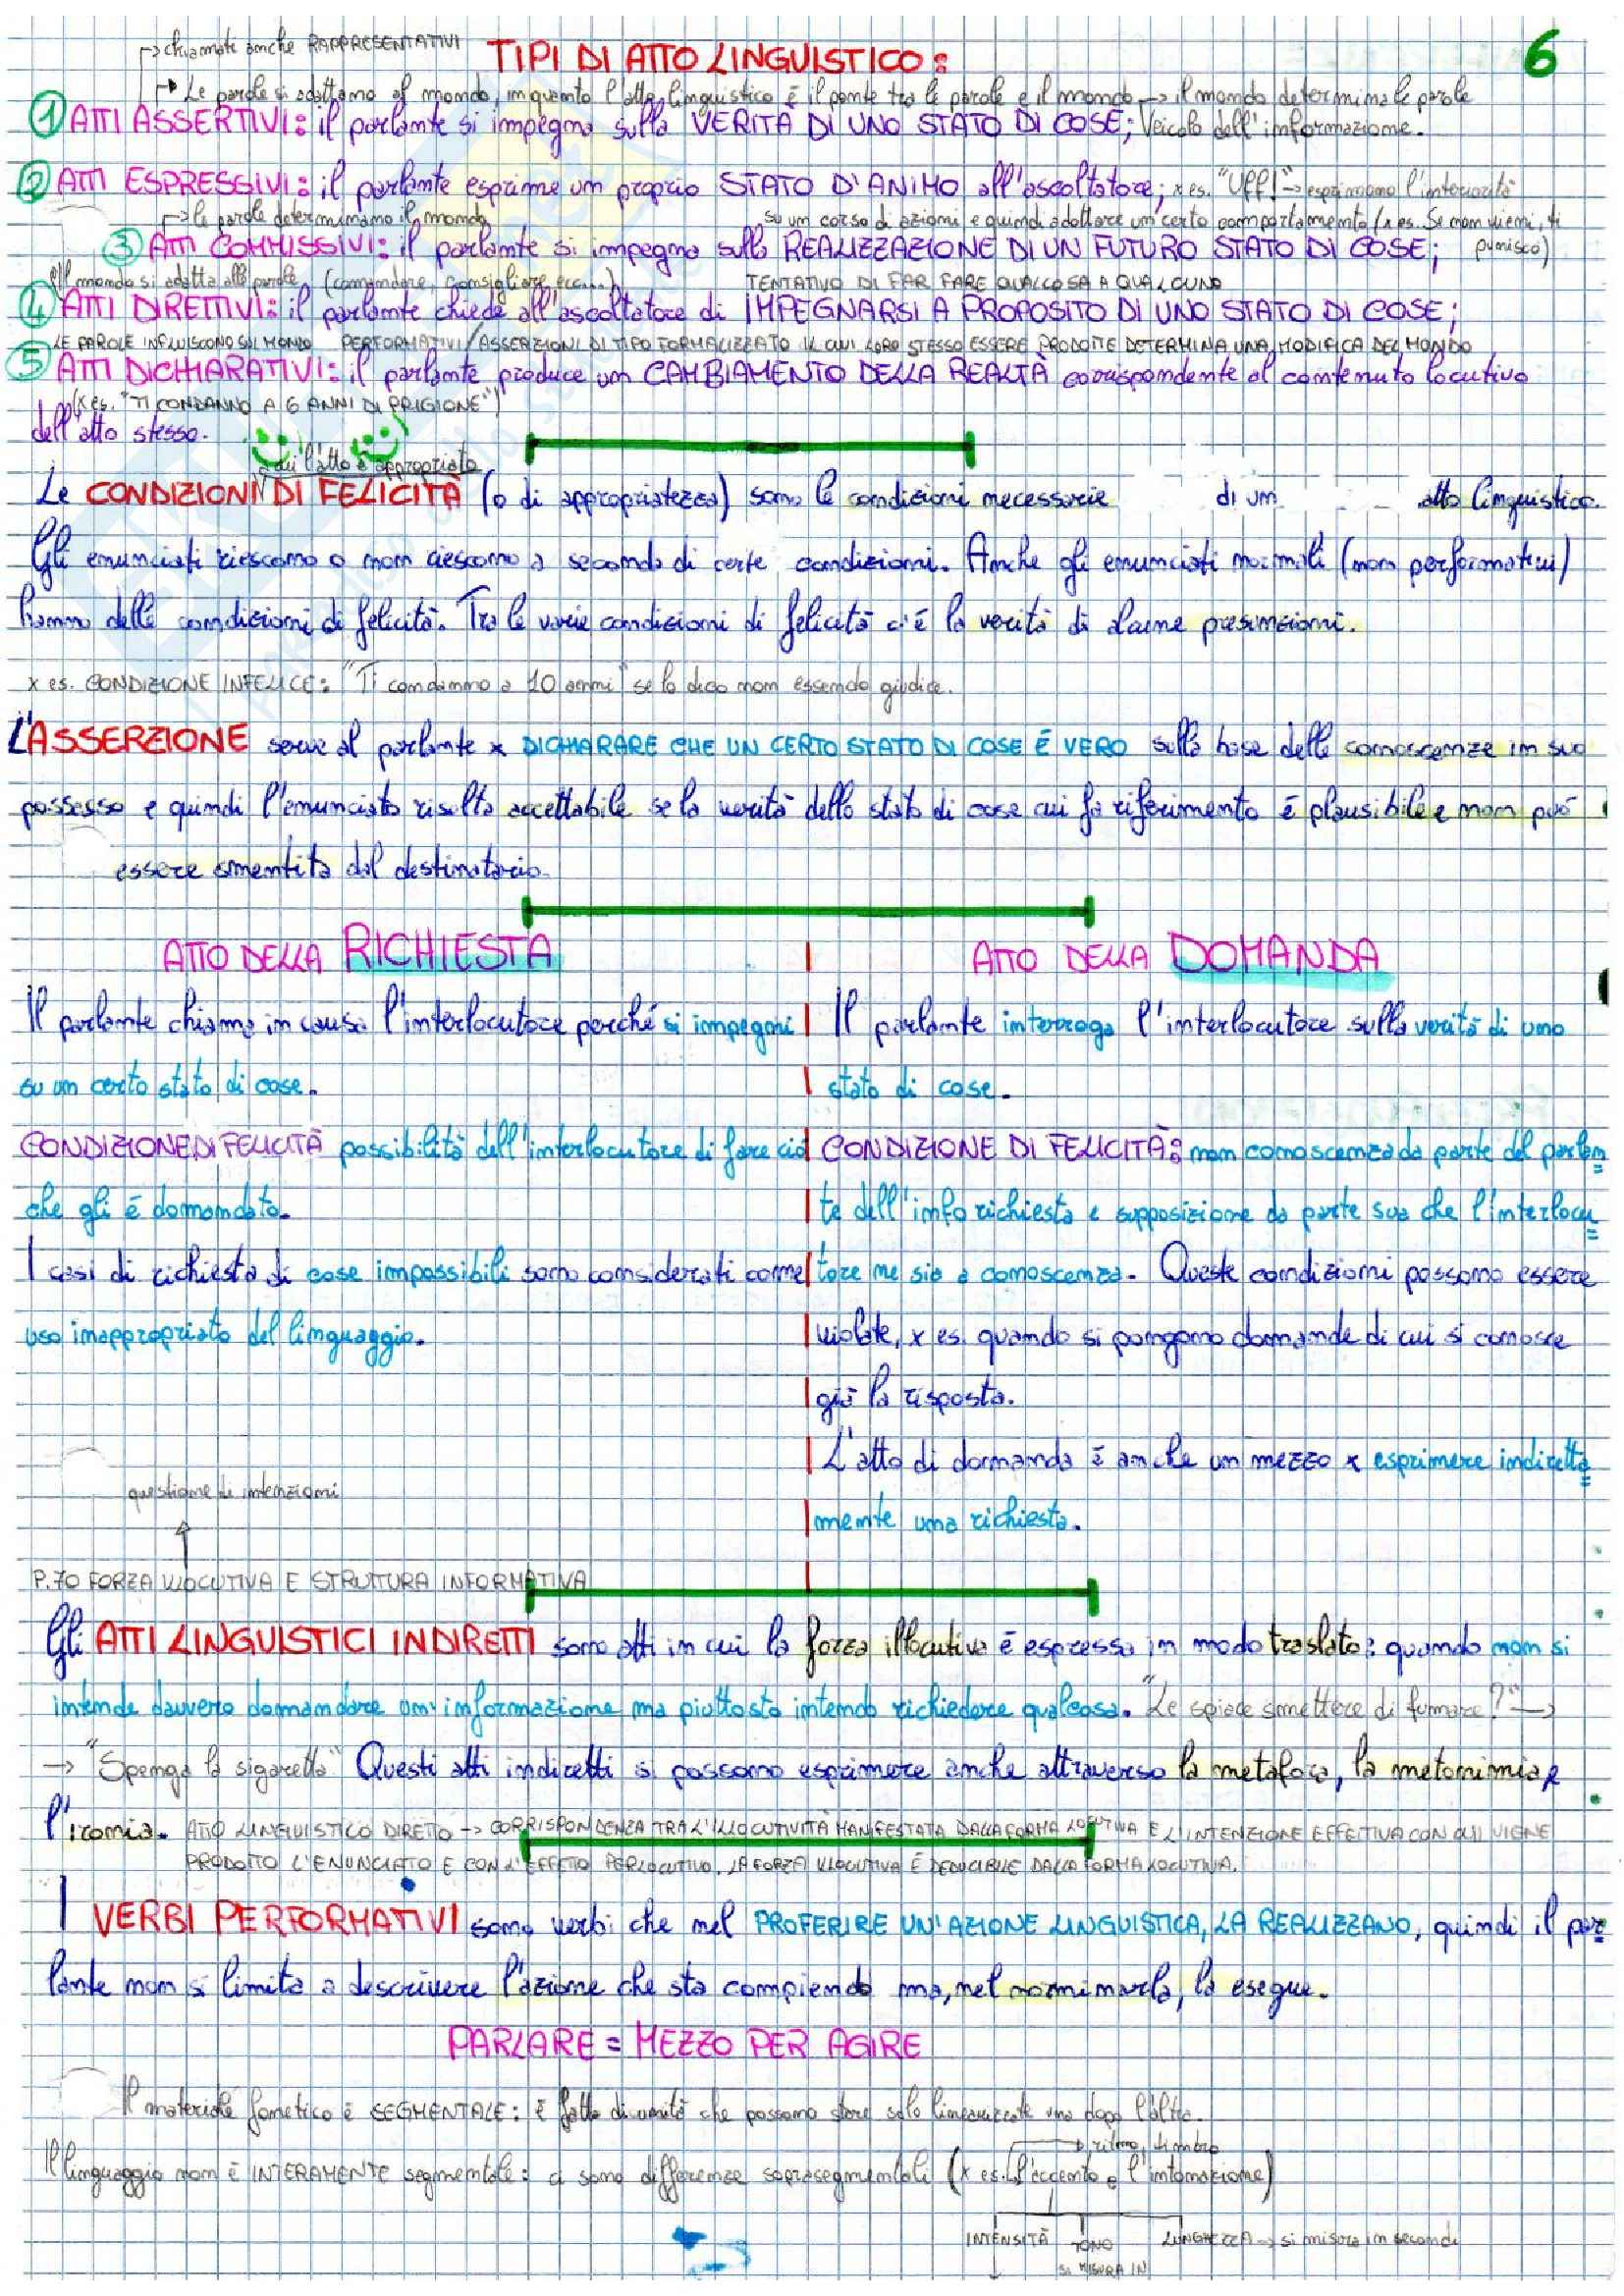 6
→ chiamati anche RAPPRESENTATIVI
TIPI DI ATTO LINGUISTICO:
→ Le parole si adattano al mondo, in quanto l'atto linguistico è il ponte tra le parole e il mondo → il mondo determina le parole
① ATTI ASSERTIVI: il parlante si impegna sulla VERITÀ DI UNO STATO DI COSE; Veicolo dell'informazione.
② ATTI ESPRESSIVI: il parlante esprime un proprio STATO D'ANIMO all'ascoltatore; x es. "Uff!" → esprimono l'interiorità
→ le parole determinano il mondo
su un corso di azioni e quindi adottare un certo comportamento (x es. Se non vieni, ti punisco)
③ ATTI COMMISSIVI: il parlante si impegna sulla REALIZZAZIONE DI UN FUTURO STATO DI COSE;
il mondo si adatta alle parole (comandare, consigliare ecc...) TENTATIVO DI FAR FARE QUALCOSA A QUALCUNO
④ ATTI DIRETTIVI: il parlante chiede all'ascoltatore di IMPEGNARSI A PROPOSITO DI UNO STATO DI COSE;
LE PAROLE INFLUISCONO SUL MONDO PERFORMATIVI/ASSERZIONI DI TIPO FORMALIZZATO IL CUI LORO STESSO ESSERE PRODOTTE DETERMINA UNA MODIFICA DEL MONDO
⑤ ATTI DICHIARATIVI: il parlante produce un CAMBIAMENTO DELLA REALTÀ corrispondente al contenuto locutivo
(x es. "TI CONDANNO A 6 ANNI DI PRIGIONE")
dell'atto stesso.
cui l'atto è appropriato
Le CONDIZIONI DI FELICITÀ (o di appropriatezza) sono le condizioni necessarie di un atto linguistico.
Gli enunciati riescono o non riescono a seconda di certe condizioni. Anche gli enunciati normali (non performativi)
hanno delle condizioni di felicità. Tra le varie condizioni di felicità c'è la verità di alcune presunzioni.
x es. CONDIZIONE INFELICE: "Ti condanno a 10 anni" se lo dico non essendo giudice.
L'ASSERZIONE serve al parlante x DICHIARARE CHE UN CERTO STATO DI COSE È VERO sulla base delle conoscenze in suo
possesso e quindi l'enunciato risulta accettabile se la verità dello stato di cose cui fa riferimento è plausibile e non può
essere smentita dal destinatario.
ATTO DELLA RICHIESTA
Il parlante chiama in causa l'interlocutore perché si impegni
su un certo stato di cose.
CONDIZIONE DI FELICITÀ possibilità dell'interlocutore di fare ciò
che gli è domandato.
I casi di richiesta di cose impossibili sono considerati come
uso inappropriato del linguaggio.
ATTO DELLA DOMANDA
Il parlante interroga l'interlocutore sulla verità di uno
stato di cose.
CONDIZIONE DI FELICITÀ: non conoscenza da parte del parlan=
te dell'info richiesta e supposizione da parte sua che l'interlocu=
tore ne sia a conoscenza. Queste condizioni possono essere
violate, x es. quando si pongono domande di cui si conosce
già la risposta.
L'atto di domanda è anche un mezzo x esprimere indiretta=
mente una richiesta.
questione di intenzioni
P.70 FORZA ILLOCUTIVA E STRUTTURA INFORMATIVA
Gli ATTI LINGUISTICI INDIRETTI sono atti in cui la forza illocutiva è espressa in modo traslato: quando non si
intende davvero domandare un'informazione ma piuttosto intendo richiedere qualcosa. "Le spiace smettere di fumare?" →
→ "Spenga la sigaretta" Questi atti indiretti si possono esprimere anche attraverso la metafora, la metonimia e
l'ironia. ATTO LINGUISTICO DIRETTO → CORRISPONDENZA TRA L'ILLOCUTIVITÀ MANIFESTATA DALLA FORMA LOCUTIVA E L'INTENZIONE EFFETTIVA CON CUI VIENE
PRODOTTO L'ENUNCIATO E CON L'EFFETTO PERLOCUTIVO. LA FORZA ILLOCUTIVA È DEDUCIBILE DALLA FORMA LOCUTIVA.
I VERBI PERFORMATIVI sono verbi che nel PROFERIRE UN'AZIONE LINGUISTICA, LA REALIZZANO, quindi il par=
lante non si limita a descrivere l'azione che sta compiendo ma, nel nominarla, la esegue.
PARLARE = MEZZO PER AGIRE
Il materiale fonetico è SEGMENTALE: è fatto di unità che possono stare solo linearizzate una dopo l'altra.
→ ritmo, timbro
Il linguaggio non è INTERAMENTE segmentale: ci sono differenze soprasegmentali (x es. l'accento e l'intonazione)
INTENSITÀ TONO LUNGHEZZA → si misura in secondi
SI MISURA IN